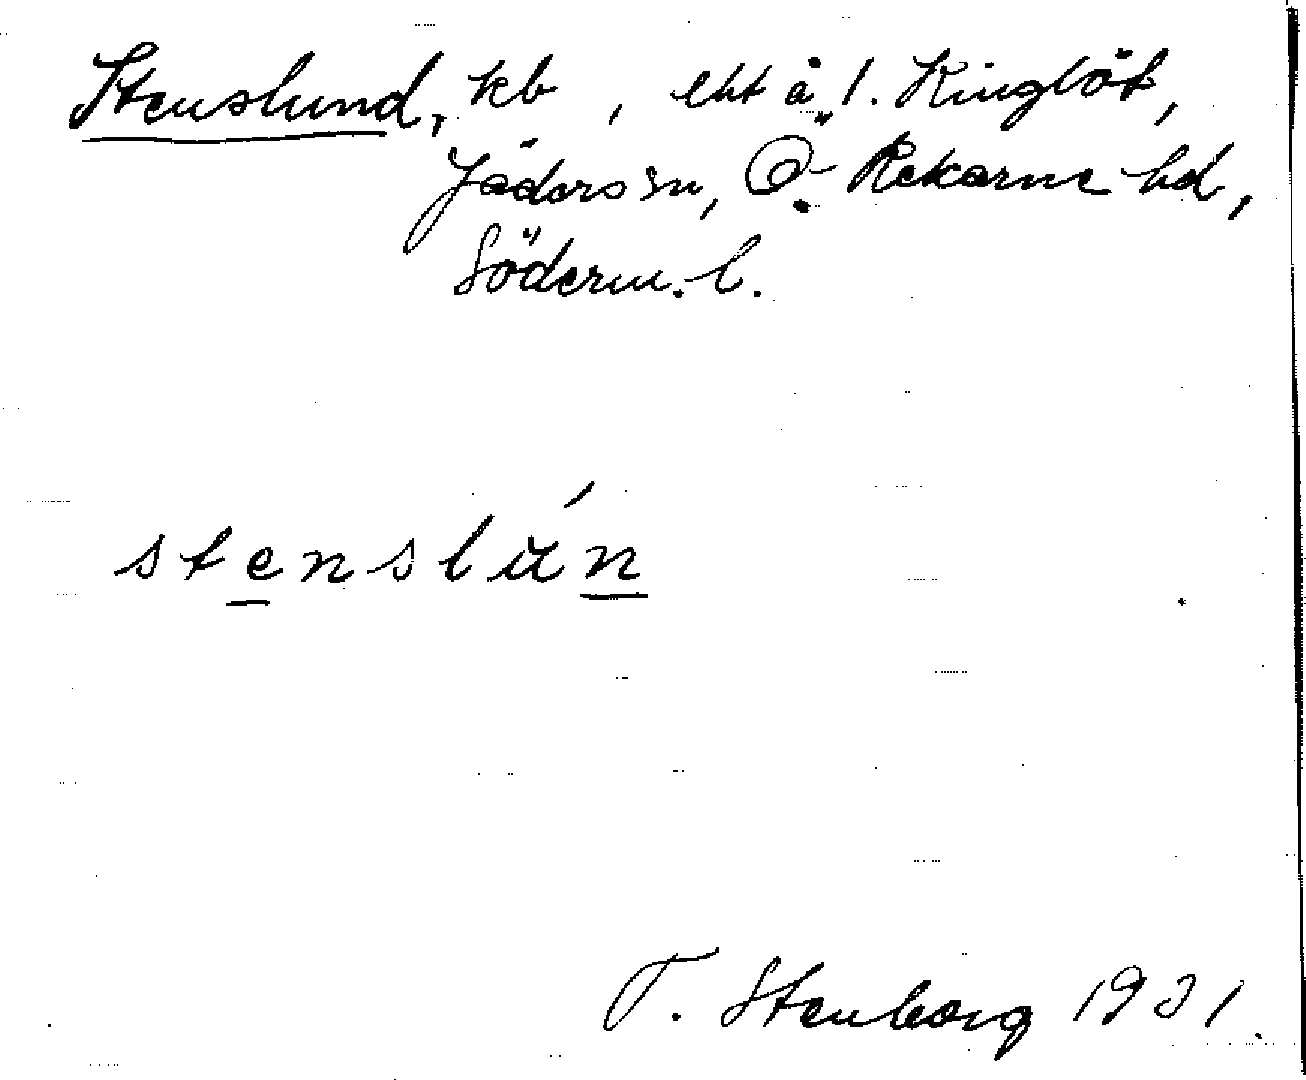 Stenslund, kb , ekt å 1. Kinglöt,
Jäders sn, Ö. Rekarne hd,
Söderm. l.
stenslún
T. Stenborg 1931.